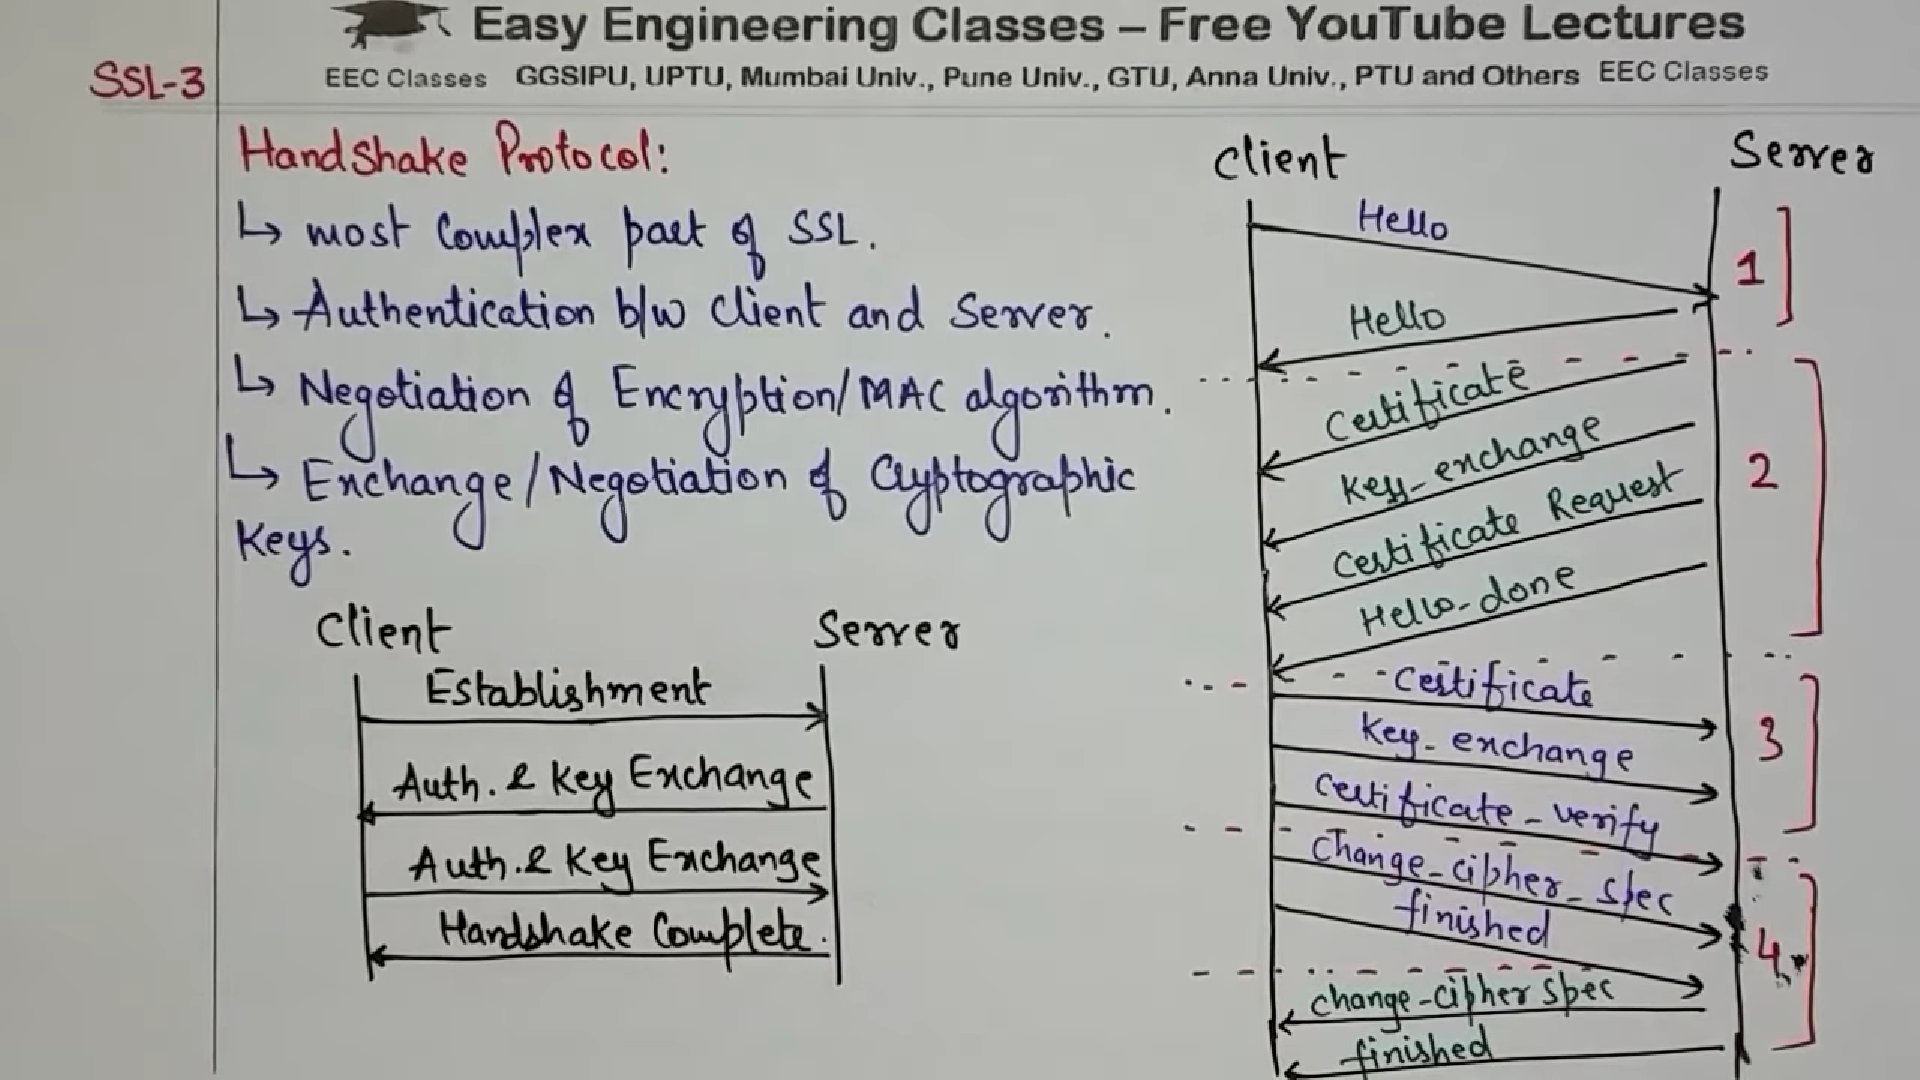 Easy Engineering Classes – Free YouTube Lectures
EEC Classes GGSIPU, UPTU, Mumbai Univ., Pune Univ., GTU, Anna Univ., PTU and Others EEC Classes
SSL-3
Handshake Protocol:
↳ most Complex part of SSL.
↳ Authentication b/w Client and Server.
↳ Negotiation of Encryption/MAC algorithm.
↳ Exchange/Negotiation of Cryptographic
Keys.
Client Server
Establishment
Auth. & Key Exchange
Auth. & Key Exchange
Handshake Complete.
Client Server
Hello
1
Hello
Certificate
Key_exchange
2
Certificate Request
Hello_done
Certificate
Key_exchange
3
Certificate_verify
Change_cipher_spec
finished
4
change_cipher spec
finished